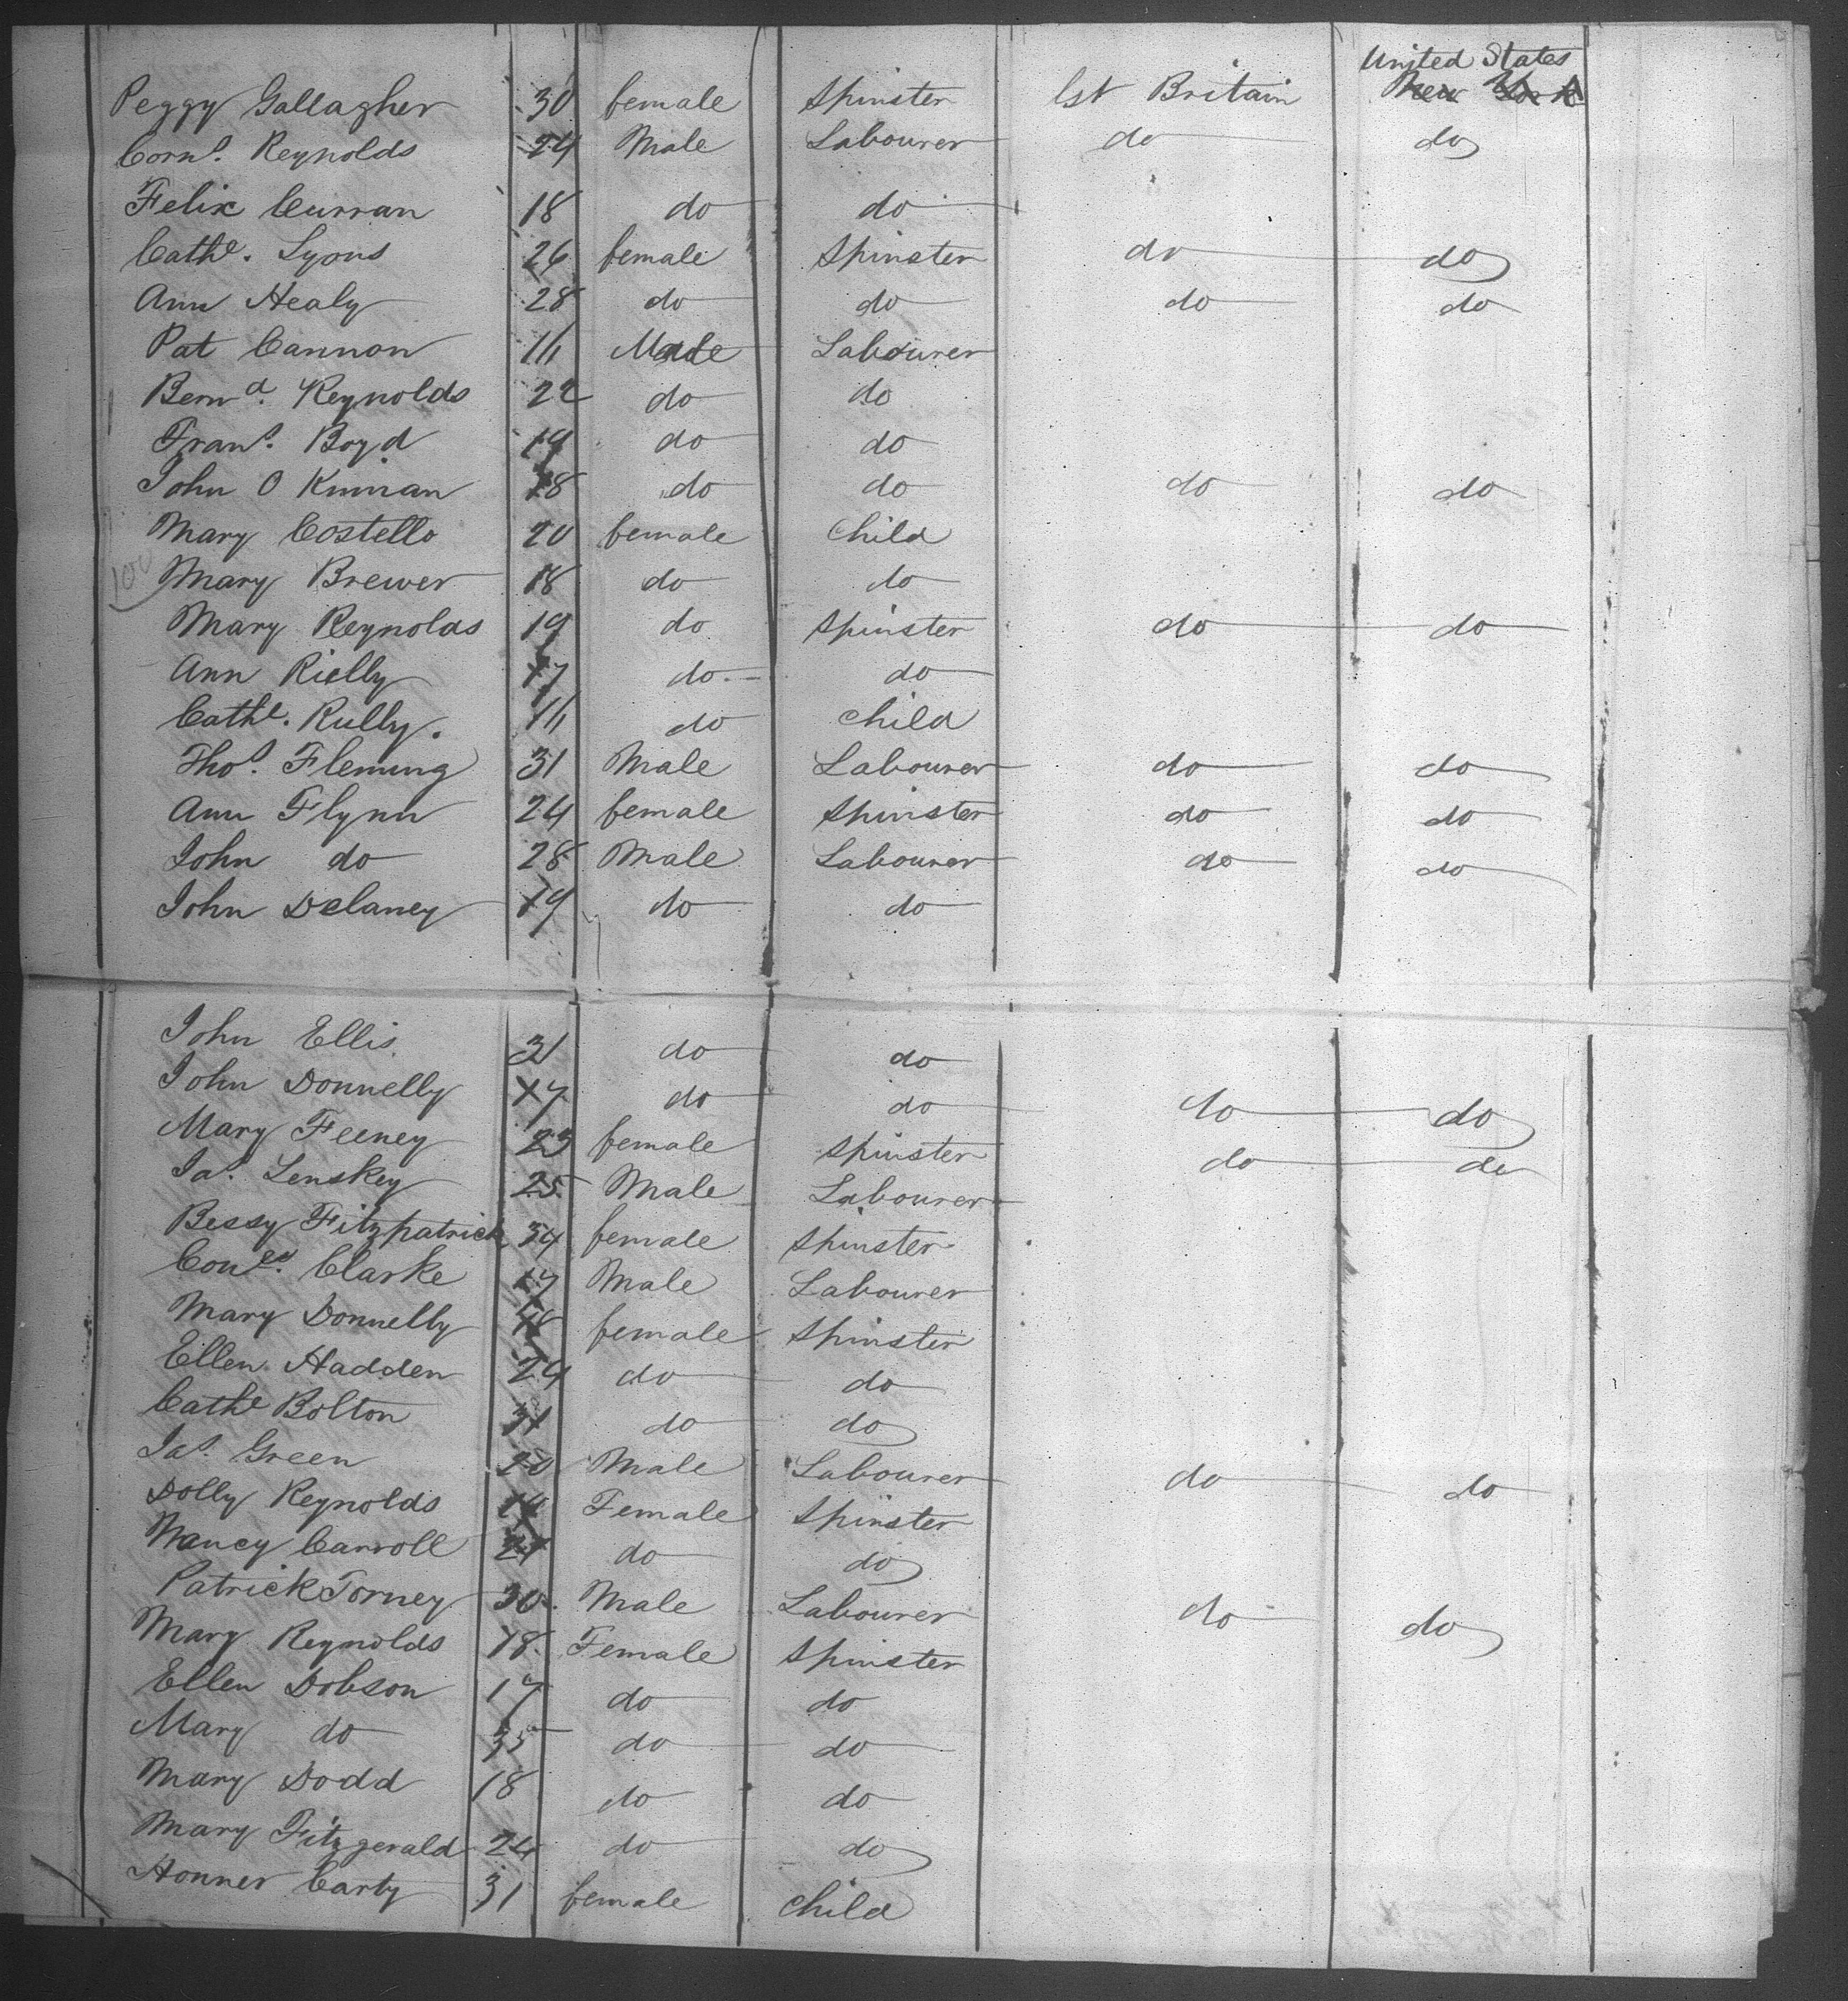 United States
Peggy Gallagher 30 female Spinster Gt Britain New York
Corns. Reynolds 24 Male Labourer do do
Felix Curran 18 do do
Cathe. Lyons 26 female Spinster do do
Ann Healy 28 do do do do
Pat Cannon 11 Male Labourer
Bernd. Reynolds 22 do do
Frans. Boyd 19 do do
John O Kinnan 18 do do do do
Mary Costello 20 female Child
100 Mary Brewer 18 do do
Mary Reynolds 19 do Spinster do do
Ann Rielly 17 do do
Cathe. Rielly. 11 do Child
Thos. Fleming 31 Male Labourer do do
Ann Flynn 24 female Spinster do do
John do 28 Male Labourer do do
John Delaney 19 do do
John Ellis 31 do do
John Donnelly 17 do do do do
Mary Feeney 23 female Spinster do do
Jas. Lenskey 25 Male Labourer
Bessy Fitzpatrick 34 female Spinster
Clarke 17 Male Labourer
Mary Donnelly female Spinster
Ellen Hadden 24 do do
Cathe Bolton 31 do do
Jas. Green 20 Male Labourer do do
Dolly Reynolds Female Spinster
Nancy Carroll 21 do do
Patrick Torney 30 Male Labourer do do
Mary Reynolds 18 Female Spinster
Ellen Dobson 17 do do
Mary do 35 do do
Mary Dodd 18 do do
Mary Fitzgerald 24 do do
Honner Carty 31 female Child